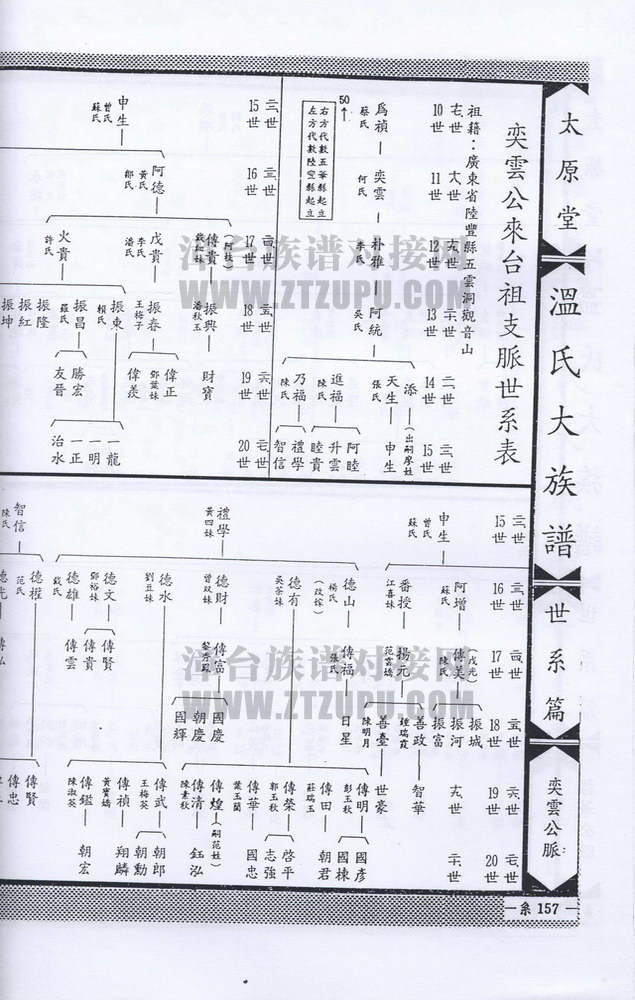 太原堂
溫氏大族譜
世系篇
奕雲公脈
系 157
奕雲公來台祖支脈世系表
祖籍：廣東省陸豐縣五雲洞觀音山
右方代數五華縣起立
左方代數陸空縣起立
50
10世
11世
12世
13世
14世
15世
為禎
蔡氏
奕雲
何氏
朴雅
李氏
阿統
吳氏
添
(出嗣廖姓)
天生
張氏
申生
進福
陳氏
阿睦
升雲
睦貴
乃福
陳氏
禮學
智信
15世
16世
17世
18世
19世
20世
申生
曾氏
蘇氏
阿德
黃氏
鄒氏
(阿枝)
傳貴
戊貴
李氏
潘氏
火貴
許氏
振興
潘秋玉
振春
王梅子
振東
賴氏
振昌
羅氏
振隆
振紅
振坤
財寶
偉正
鄧葉妹
偉羨
勝宏
友晉
一龍
一明
一正
治水
15世
16世
17世
18世
19世
20世
申生
曾氏
蘇氏
阿增
蘇氏
番授
江喜妹
(戊光)
傳美
陳氏
揚元
范雲嬌
振城
振河
振富
善政
鍾瑞霞
善臺
陳明月
智華
世豪
禮學
黃四妹
德山
楊氏
(改嫁)
德有
吳茶妹
德財
曾双妹
德水
劉豆妹
德文
鄧裕妹
德雄
戴氏
傳福
張氏
日星
傳富
黎秀鳳
國慶
朝慶
國輝
傳賢
傳貴
傳雲
傳明
彭玉秋
國彥
國棟
傳田
莊瑞玉
朝君
傳榮
郭玉秋
啓平
志強
傳華
葉玉蘭
國忠
傳煌
(嗣范姓)
傳清
陳素秋
鈺泓
傳武
王梅英
朝郎
朝勳
傳禎
黃寶嬌
翔麟
傳鑑
陳淑英
朝宏
智信
陳氏
德權
范氏
德光
傳弘
傳賢
傳忠
泽台族谱对接网
WWW.ZTZUPU.COM
泽台族谱对接网
WWW.ZTZUPU.COM